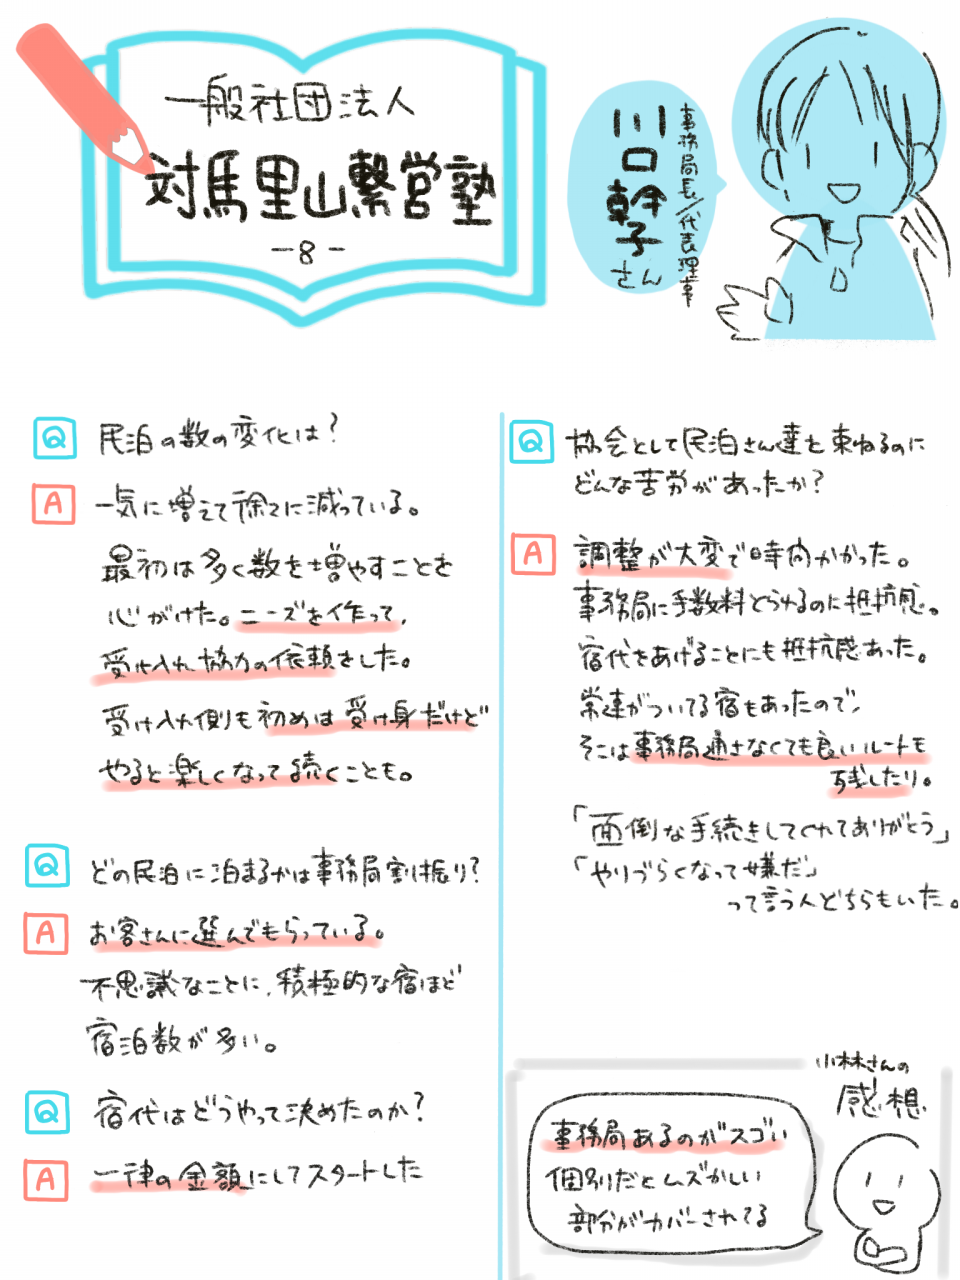 一般社団法人
対馬里山繋営塾
-8-
事務局長/代表理事
川口幹子さん
Q 民泊の数の変化は?
A 一気に増えて徐々に減っている。
最初は多く数を増やすことを
心がけた。ニーズを作って、
受け入れ協力の依頼をした。
受け入れ側も初めは受け身だけど
やると楽しくなって続くことも。
Q どの民泊に泊まるかは事務局割り振り?
A お客さんに選んでもらっている。
不思議なことに、積極的な宿ほど
宿泊数が多い。
Q 宿代はどうやって決めたのか?
A 一律の金額にしてスタートした
Q 協会として民泊さん達を束ねるのに
どんな苦労があったか?
A 調整が大変で時間かかった。
事務局に手数料とられるのに抵抗感。
宿代をあげることにも抵抗感あった。
常連がついてる宿もあったので、
そこは事務局通さなくても良いルートも
残したり。
「面倒な手続きしてくれてありがとう」
「やりづらくなって嫌だ」
って言う人どちらもいた。
小林さんの
感想
事務局あるのがスゴい
個別だとムズかしい
部分がカバーされてる